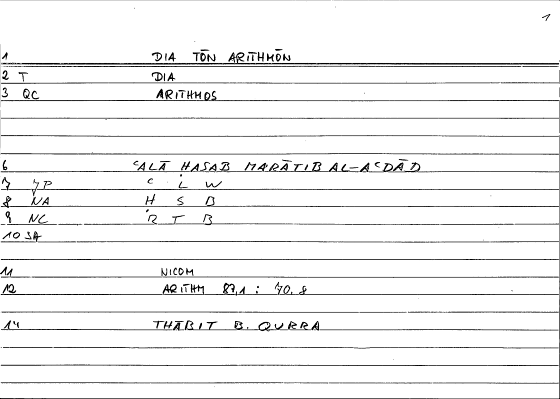 1
1 DIA TŌN ARITHMŌN
2 T DIA
3 QC ARITHMOS
6 ʿALĀ ḤASAB MARĀTIB AL-AʿDĀD
7 JP ʿ L W
8 NA Ḥ S B
9 NC R T B
10 JA
11 NICOM
12 ARITHM 87,1 : 70,8
14 THĀBIT B. QURRA